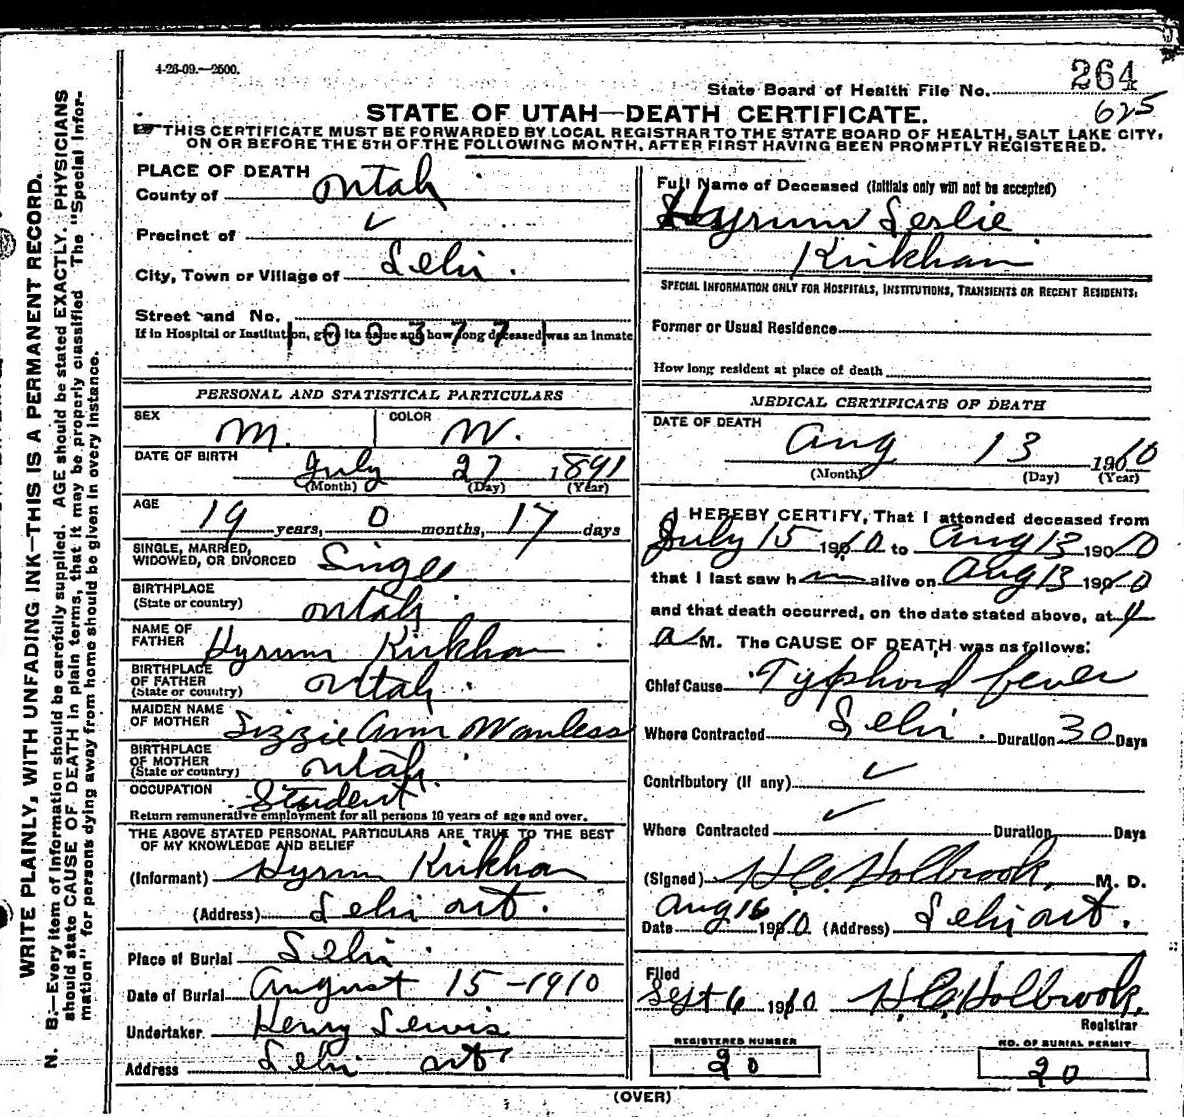 4-26-09.—2500.
State Board of Health File No. 264
625
STATE OF UTAH—DEATH CERTIFICATE.
THIS CERTIFICATE MUST BE FORWARDED BY LOCAL REGISTRAR TO THE STATE BOARD OF HEALTH, SALT LAKE CITY,
ON OR BEFORE THE 5TH OF THE FOLLOWING MONTH, AFTER FIRST HAVING BEEN PROMPTLY REGISTERED.
WRITE PLAINLY, WITH UNFADING INK—THIS IS A PERMANENT RECORD.
N. B.—Every item of information should be carefully supplied. AGE should be stated EXACTLY. PHYSICIANS
should state CAUSE OF DEATH in plain terms, that it may be properly classified The "Special Infor-
mation" for persons dying away from home should be given in every instance.
PLACE OF DEATH
County of Utah
Precinct of
City, Town or Village of Lehi.
Street and No.
If in Hospital or Institution, give its name and how long deceased was an inmate
100377
PERSONAL AND STATISTICAL PARTICULARS
SEX M. COLOR W.
DATE OF BIRTH July 27 1891
(Month) (Day) (Year)
AGE 19 years, 0 months, 17 days
SINGLE, MARRIED,
WIDOWED, OR DIVORCED Single
BIRTHPLACE
(State or country) Utah
NAME OF
FATHER Hyrum Kirkham
BIRTHPLACE
OF FATHER
(State or country) Utah
MAIDEN NAME
OF MOTHER Lizzie Ann Wanless
BIRTHPLACE
OF MOTHER
(State or country) Utah
OCCUPATION Student
Return remunerative employment for all persons 10 years of age and over.
THE ABOVE STATED PERSONAL PARTICULARS ARE TRUE TO THE BEST
OF MY KNOWLEDGE AND BELIEF
(Informant) Hyrum Kirkham
(Address) Lehi Ut.
Place of Burial Lehi
Date of Burial August 15-1910
Undertaker Henry Lewis
Address Lehi Ut
Full Name of Deceased (Initials only will not be accepted)
Hyrum Leslie
Kirkham
SPECIAL INFORMATION ONLY FOR HOSPITALS, INSTITUTIONS, TRANSIENTS OR RECENT RESIDENTS:
Former or Usual Residence
How long resident at place of death
MEDICAL CERTIFICATE OF DEATH
DATE OF DEATH
Aug 13 1910
(Month) (Day) (Year)
I HEREBY CERTIFY, That I attended deceased from
July 15 1910 to Aug 13 1910
that I last saw him alive on Aug 13 1910
and that death occurred, on the date stated above, at 4
a M. The CAUSE OF DEATH was as follows:
Chief Cause Typhoid fever
Where Contracted Lehi. Duration 30 Days
Contributory (if any)
Where Contracted Duration Days
(Signed) H.C. Holbrook, M. D.
Aug 16
Date 1910 (Address) Lehi Ut.
Filed
Sept 6 1910 H.C. Holbrook,
Registrar
REGISTERED NUMBER
20
NO. OF BURIAL PERMIT
20
(OVER)